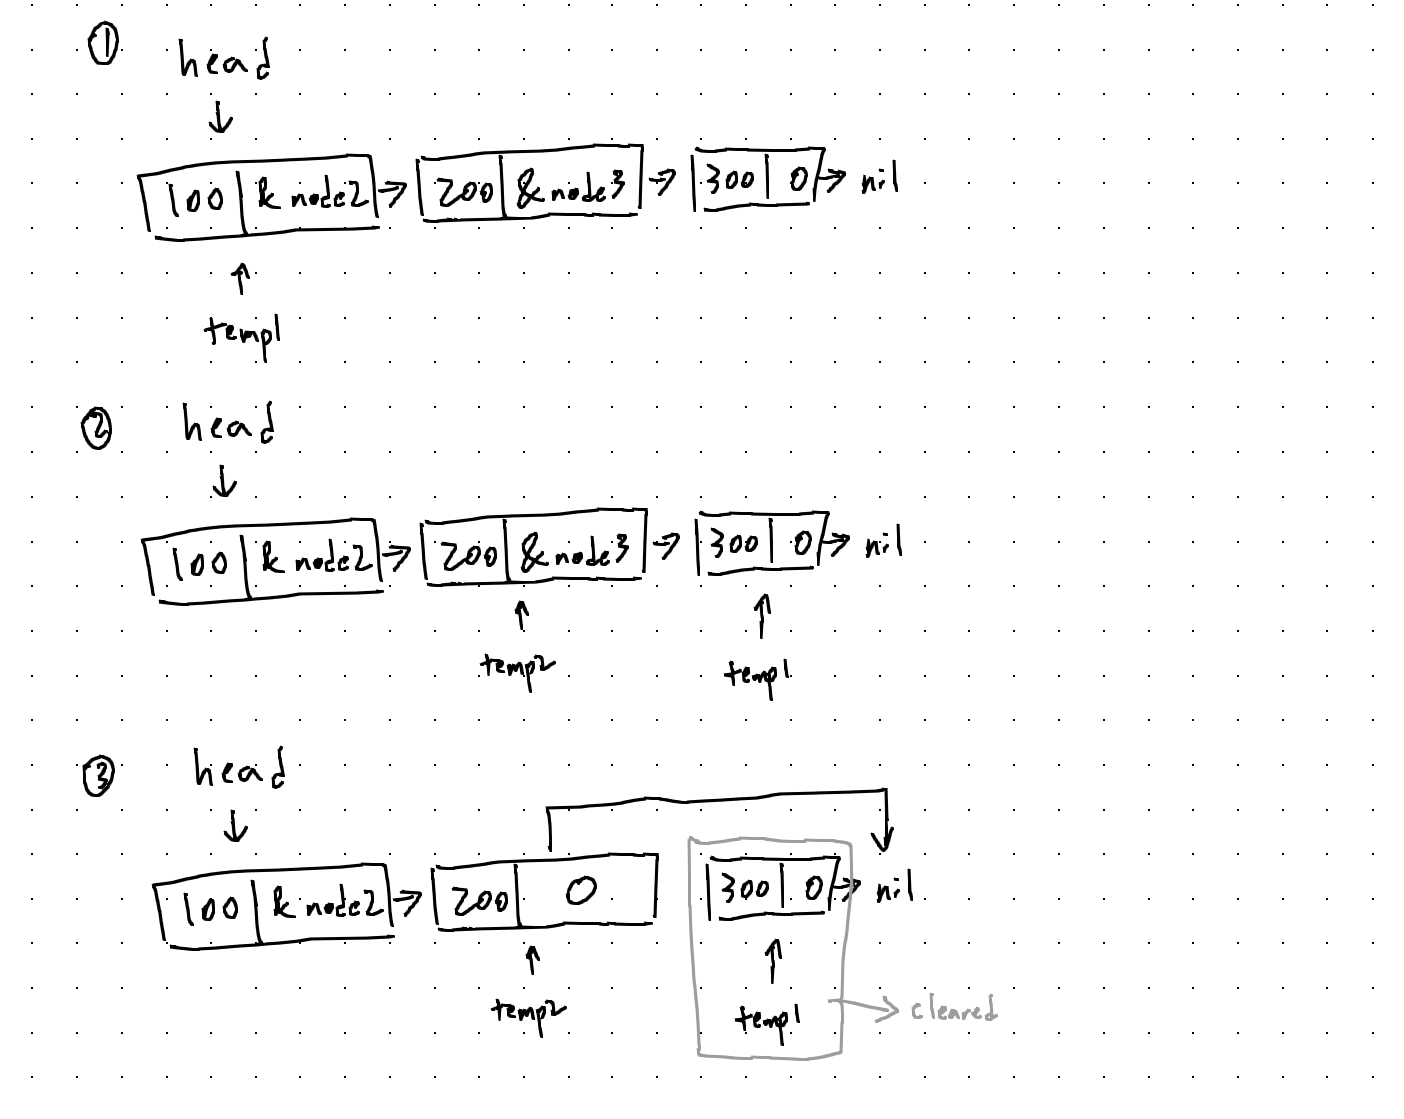 ① head
100 & node2 → 200 &node3 → 300 0 → nil
temp1
② head
100 & node2 → 200 &node3 → 300 0 → nil
temp2 temp1
③ head
100 & node2 → 200 0 300 0 → nil
temp2 temp1 → cleared